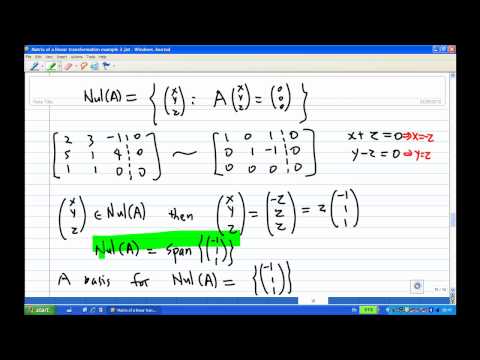 Matrix of a linear transformation example 3.jnt - Windows Journal
File Edit View Insert Actions Tools Help
Note Title
Nul(A) = { (x y z) : A (x y z) = (0 0 0) }
[2 3 -1 | 0] ~ [1 0 1 | 0] x+z=0 ⇒ x=-z
[5 1 4 | 0] [0 1 -1 | 0] y-z=0 ⇒ y=z
[1 1 0 | 0] [0 0 0 | 0]
(x y z) ∈ Nul(A) then (x y z) = (-z z z) = z (-1 1 1)
Nul(A) = span {(-1 1 1)}
A basis for Nul(A) = {(-1 1 1)}
start
Matrix of a linear tran...